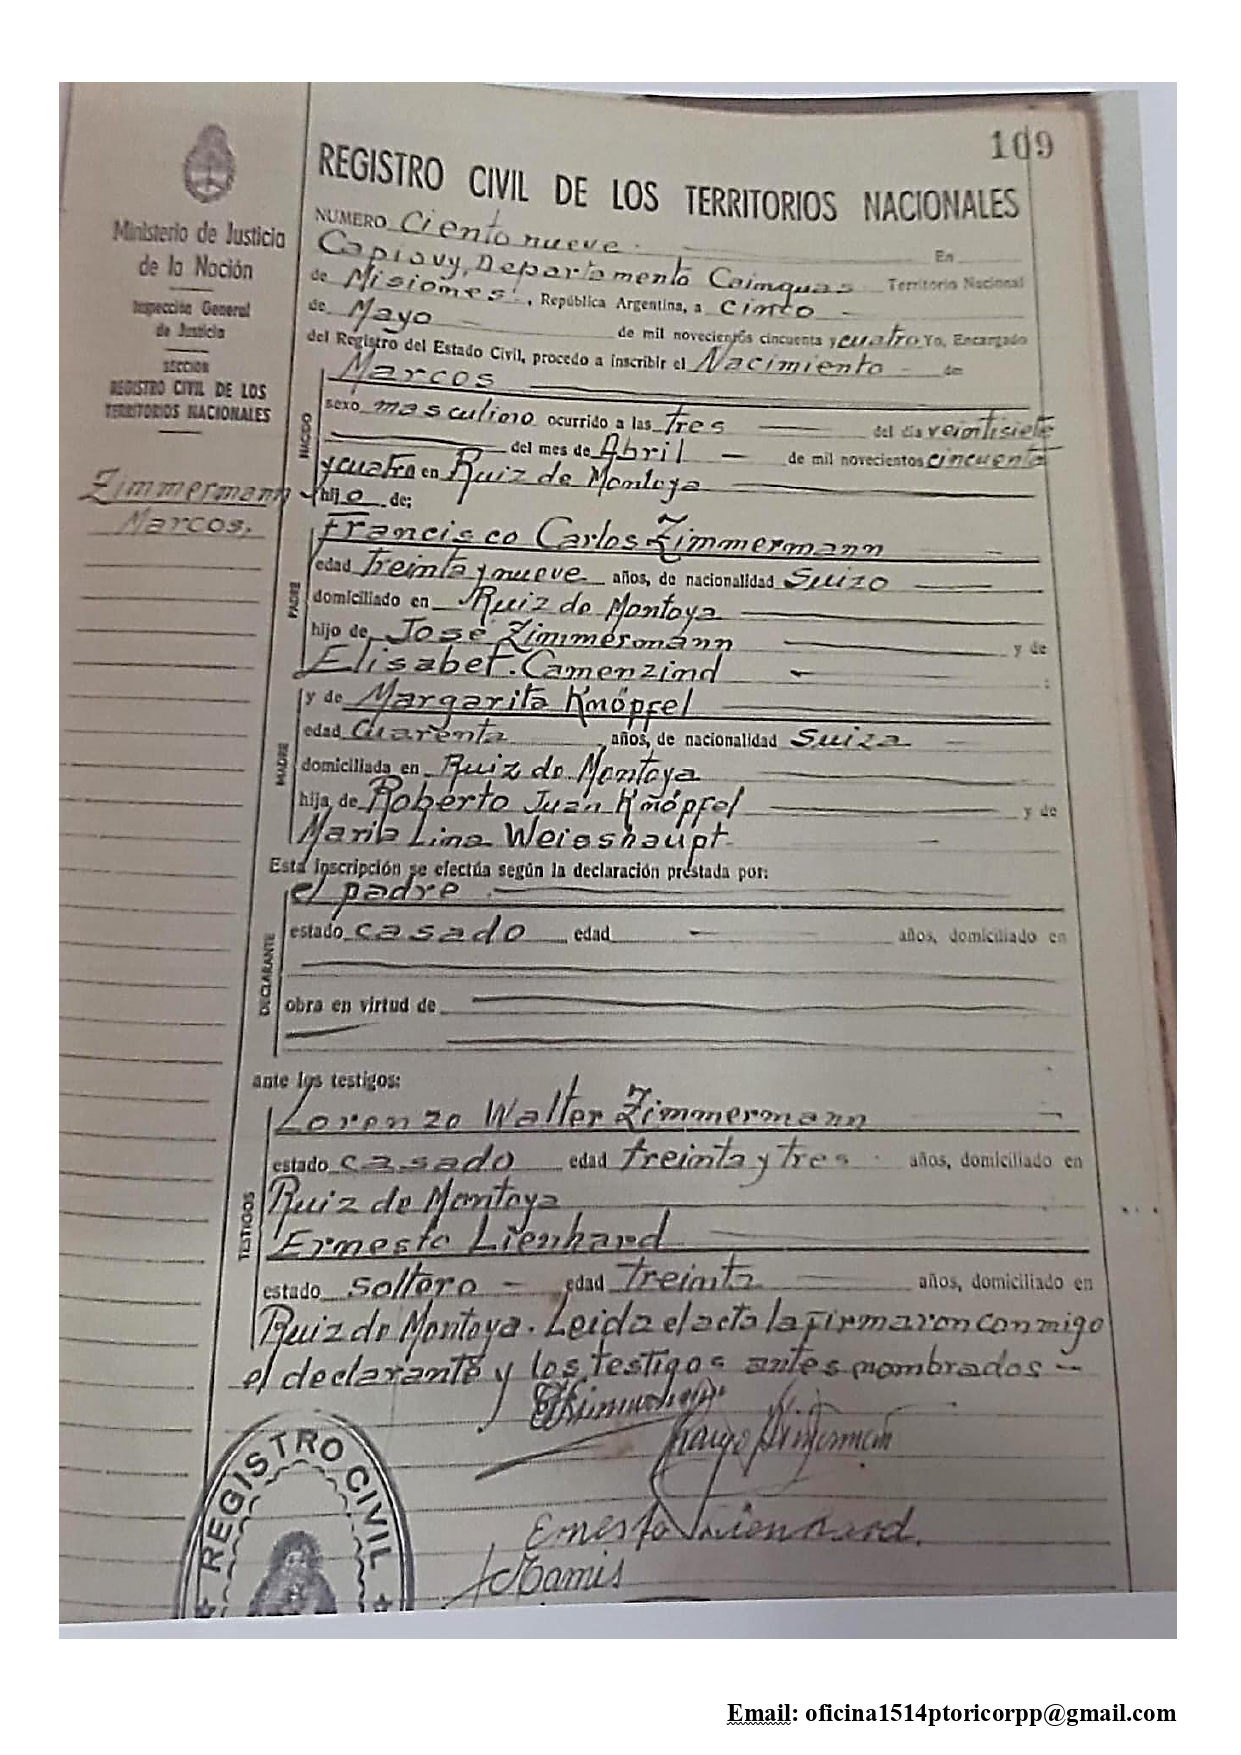 109
REGISTRO CIVIL DE LOS TERRITORIOS NACIONALES
Ministerio de Justicia
de la Nación
Inspección General
de Justicia
SECCION
REGISTRO CIVIL DE LOS
TERRITORIOS NACIONALES
Zimmermann
Marcos.
NUMERO Ciento nueve. En
Capiovy, Departamento Cainguas Territorio Nacional
de Misiones, República Argentina, a cinco
de Mayo de mil novecientos cincuenta y cuatro Yo, Encargado
del Registro del Estado Civil, procedo a inscribir el Nacimiento de
Marcos
NACIDO
sexo masculino ocurrido a las tres del día veintisiete
del mes de Abril de mil novecientos cincuenta
y cuatro en Ruiz de Montoya
hijo de;
PADRE
Francisco Carlos Zimmermann
edad treinta y nueve años, de nacionalidad Suizo
domiciliado en Ruiz de Montoya
hijo de José Zimmermann y de
Elisabet. Camenzind ;
MADRE
y de Margarita Knöpfel
edad Cuarenta años, de nacionalidad Suiza
domiciliada en Ruiz de Montoya
hija de Roberto Juan Knöpfel y de
María Lina Weisshaupt.
Esta inscripción se efectúa según la declaración prestada por:
DECLARANTE
el padre
estado casado edad años, domiciliado en
obra en virtud de
ante los testigos:
TESTIGOS
Lorenzo Walter Zimmermann
estado casado edad treinta y tres años, domiciliado en
Ruiz de Montoya
Ernesto Lienhard
estado soltero edad treinta años, domiciliado en
Ruiz de Montoya. Leida el acta la firmaron conmigo
el declarante y los testigos antes nombrados
Ernesto Lienhard.
REGISTRO CIVIL
Email: oficina1514ptoricorpp@gmail.com